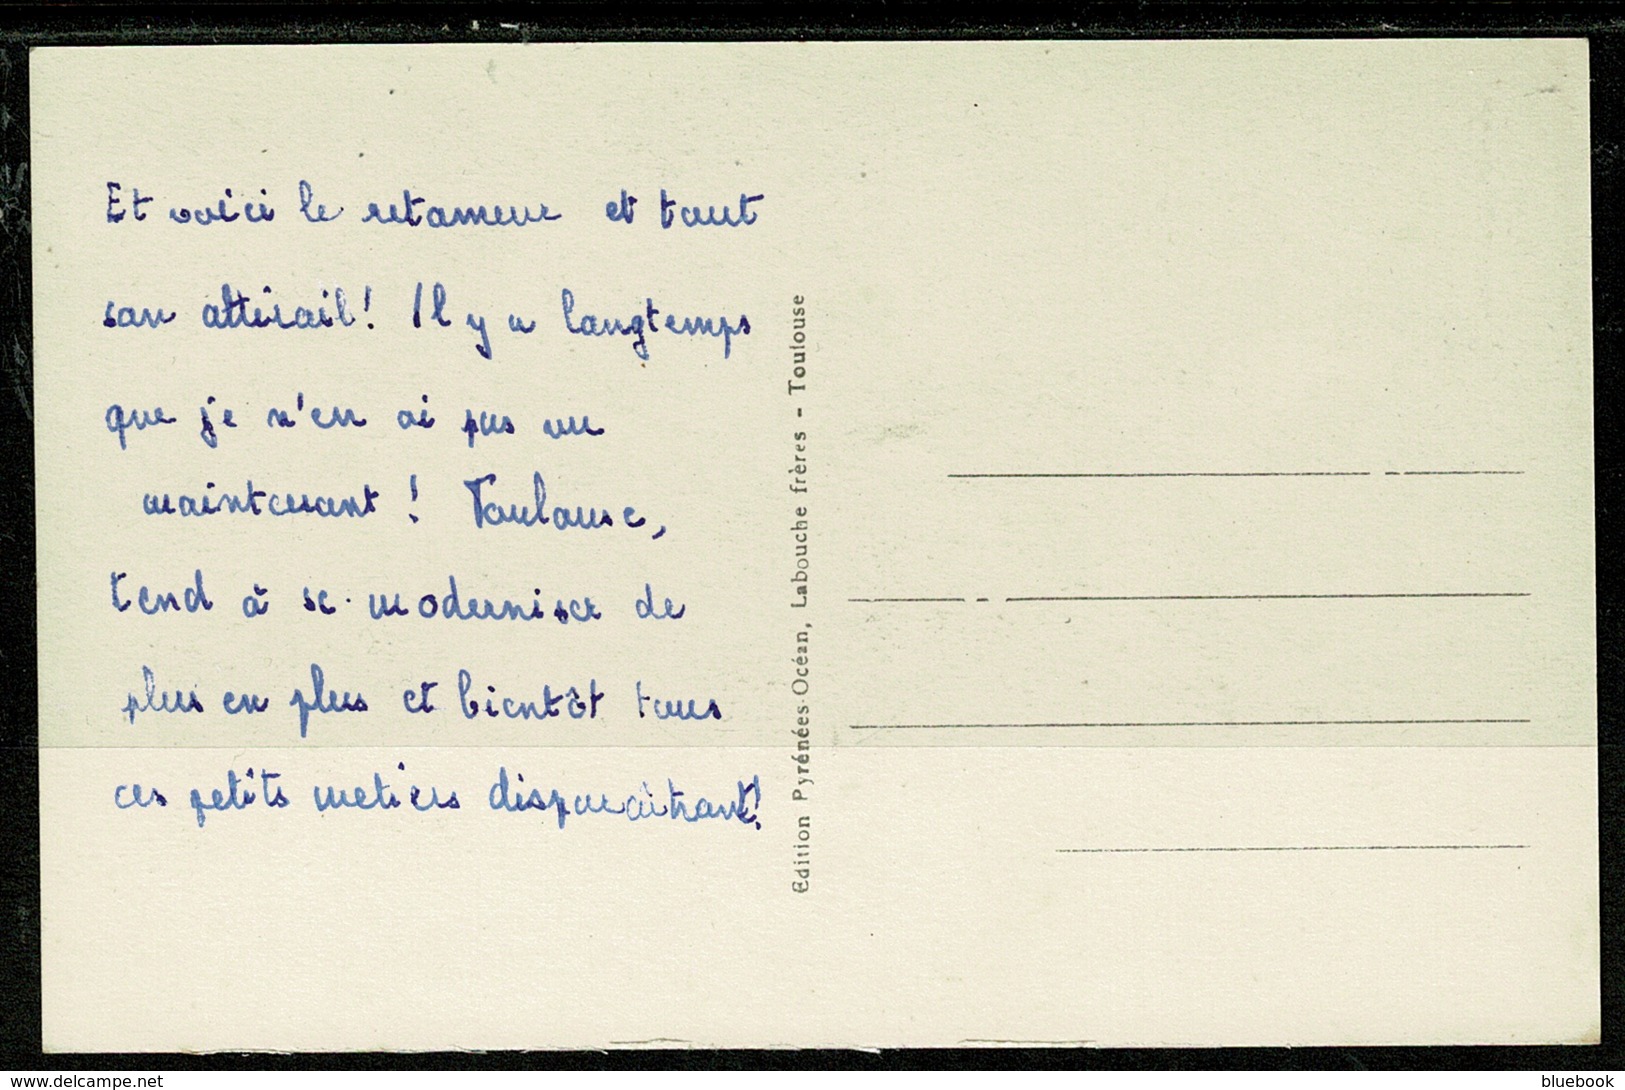 Et voici le retameur et tout
son attirail! Il y a longtemps
que je n'en ai pas vu
maintenant! Toulouse,
tend à se moderniser de
plus en plus et bientôt tous
ces petits metiers disparaitront!
Edition Pyrénées-Océan, Labouche frères - Toulouse
https://www.delcampe.net
bluebook